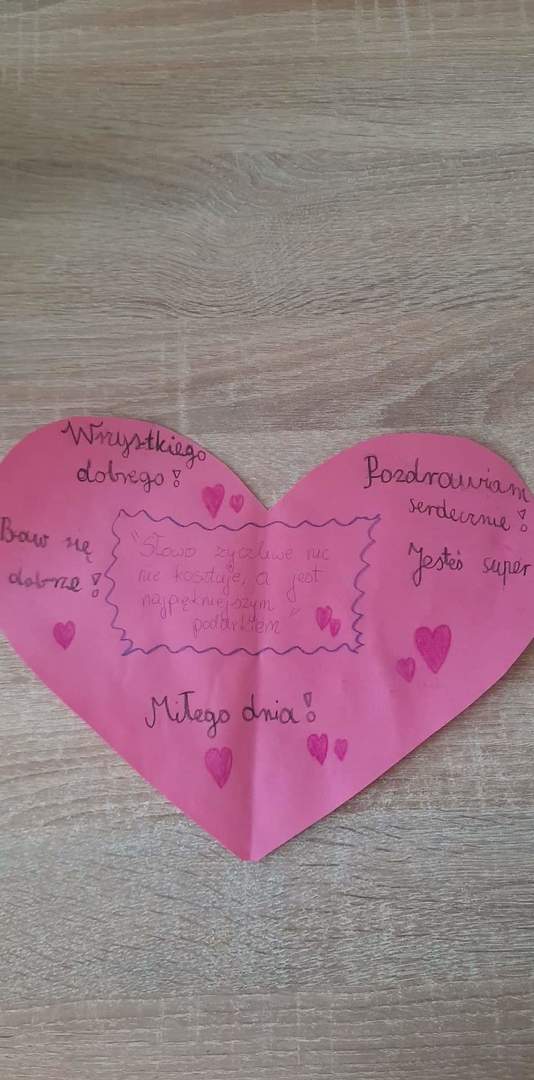 Wszystkiego
dobrego!
Pozdrawiam
serdecznie!
Jesteś super
Baw się
dobrze!
"Słowo życzliwe nic
nie kosztuje, a jest
najpiękniejszym
podarkiem"
Miłego dnia!